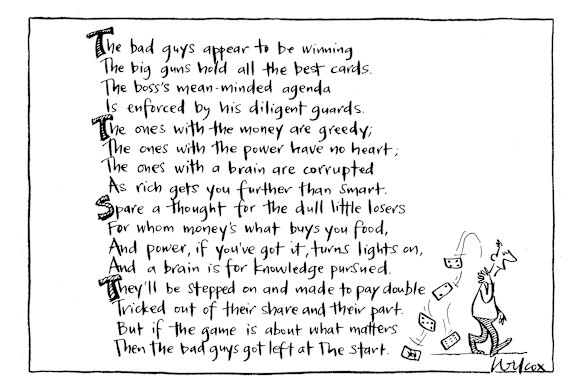 The bad guys appear to be winning
The big guns hold all the best cards.
The boss's mean-minded agenda
Is enforced by his diligent guards.
The ones with the money are greedy;
The ones with the power have no heart;
The ones with a brain are corrupted
As rich gets you further than smart.
Spare a thought for the dull little losers
For whom money's what buys you food,
And power, if you've got it, turns lights on,
And a brain is for knowledge pursued.
They'll be stepped on and made to pay double
Tricked out of their share and their part.
But if the game is about what matters
Then the bad guys got left at The start.
Wilcox